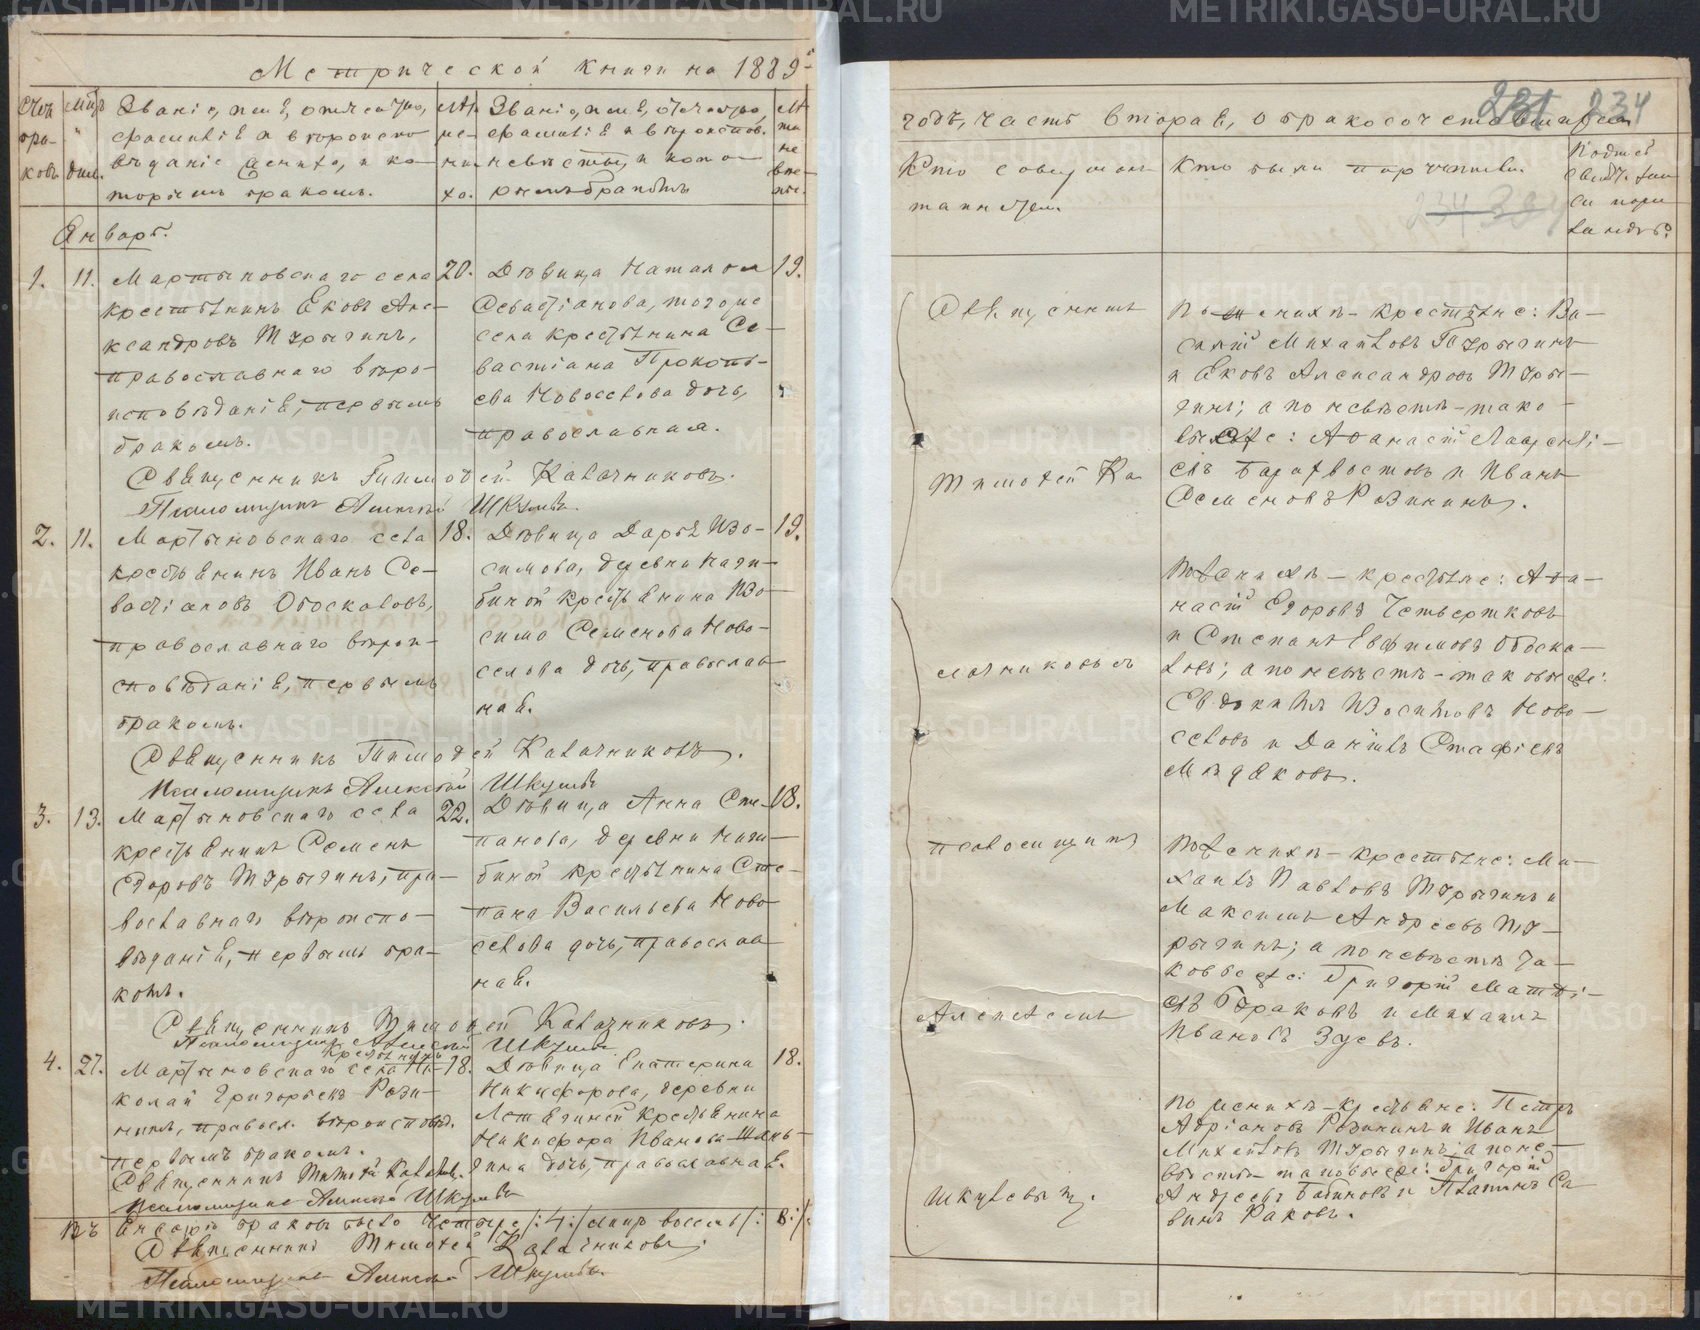 Метрической книги на 1889й
Счетъ браковъ.
Мѣц. и дни.
Званіе, имя, отчество,
фамилія и вѣроиспо-
вѣданіе жениха, и ко-
торымъ бракомъ.
Лѣ. же- ни- ха.
Званіе, имя, отчество,
фамилія и вѣроиспов.
невѣсты, и кото-
рымъ бракомъ
Лѣ та не вѣс- ты.
Январь.
1. 11.
Мартыновскаго села
крестьянинъ Яковъ Але-
ксандровъ Тюрыгинъ,
православнаго вѣро-
исповѣданія, первымъ
бракомъ.
20.
Дѣвица Наталья
Севастіанова, тогоже
села крестьянина Се-
вастіана Прокопь-
ева Новоселова дочь,
православная.
19.
Священникъ Тимофей Калачниковъ.
Псаломщикъ Алексѣй Шкулевъ
2. 11.
Мартыновскаго села
крестьянинъ Иванъ Се-
вастіановъ Обоскаловъ,
православнаго вѣрои-
сповѣданія, первымъ
бракомъ.
18.
Дѣвица Дарья Изо-
симова, деревни Наги-
биной крестьянина Изо-
сима Семенова Ново-
селова дочь, православ
ная.
19.
Священникъ Тимофей Калачниковъ.
Псаломщикъ Алексѣй Шкулевъ
3. 13.
Мартыновскаго села
крестьянинъ Семенъ
Егоровъ Тюрыгинъ, пра-
вославнаго вѣроиспо-
вѣданія, первымъ бра-
комъ.
22.
Дѣвица Анна Сте-
панова, деревни Наги-
биной крестьянина Сте-
пана Васильева Ново
селова дочь, православ
ная.
18.
Священникъ Тимофей Калачниковъ.
Псаломщикъ Алексѣй Шкулевъ
4. 27.
крестьянинъ
Мартыновскаго села Ни-
колай Григорьевъ Рози-
нинъ, правосл. вѣроисповѣд.
первымъ бракомъ.
18.
Дѣвица Екатерина
Никифорова, деревни
крестьянина
Никифора Иванова
дочь, православная.
18.
Священникъ Тимофей Калачн.
Псаломщикъ Алексѣй Шкулевъ
Въ Январѣ браковъ было четыре /:4:/ лицъ восемь /:8:/.
Священникъ Тимофей Калачниковъ.
Псаломщикъ Алексѣй Шкулевъ
231 234
годъ, часть вторая, о бракосочетавшихся
Кто совершалъ
таинство.
Кто были поручители.
Подпись
свидѣт. запи
си по же
ланію.
234
Священникъ
Тимофей Ка
лачниковъ съ
псаломщикомъ
Алексѣемъ
Шкулевымъ.
По женихѣ - крестьяне: Ва-
силій Михаиловъ Тюрыгинъ
и Яковъ Александровъ Тюры-
гинъ; а по невѣстѣ - тако-
выеже: Афанасій Лаврентi-
евъ и Иванъ
Семеновъ Розининъ.
По женихѣ - крестьяне: Афа-
насій Егоровъ Четвертковъ
и Степанъ Евфимовъ Обоска-
ловъ; а по невѣстѣ - таковыеже:
Евдокимъ Изосимовъ Ново-
селовъ и Даніилъ Стафіевъ
Медяковъ.
По женихѣ - крестьяне: Ми-
хаилъ Павловъ Тюрыгинъ и
Максимъ Андреевъ Тю-
рыгинъ; а по невѣстѣ та-
ковыеже: Григорій Матфі-
евъ Бураковъ и Михаилъ
Ивановъ Зуевъ.
По женихѣ - крестьяне: Петръ
Адріановъ Розининъ и Иванъ
Михаиловъ Тюрыгинъ; а по не-
вѣстѣ таковыеже: Григорій
Андреевъ Бабиновъ и Платонъ Са
винъ Раковъ.
METRIKI.GASO-URAL.RU